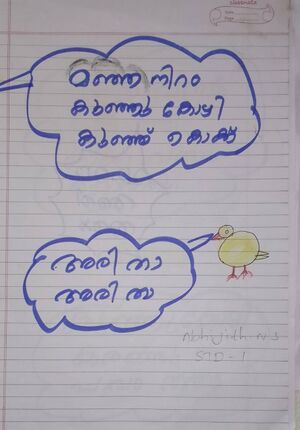 classmate
Date
Page
മഞ്ഞ നിറം
കുഞ്ഞു കോഴി
കുഞ്ഞ് കൊക്ക്
അരി താ
അരി താ
STD - 1